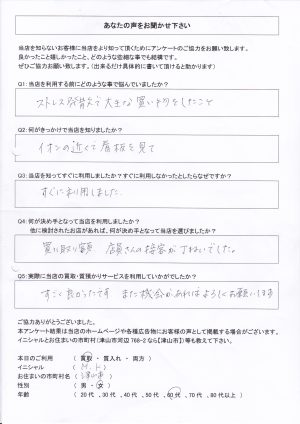 あなたの声をお聞かせ下さい
当店を知らないお客様に当店をより知って頂くためにアンケートのご協力をお願い致します。
良かったこと嬉しかったこと、どのような些細な事でも結構です。
ぜひご協力お願い致します。(出来るだけ具体的に書いて頂けると助かります)
Q1:当店を利用する前にどのような事で悩んでいましたか?
ストレス発散で大きな買いものをしたことで
Q2:何がきっかけで当店を知りましたか?
イオンの近くで看板を見て
Q3:当店を知ってすぐに利用しましたか?すぐに利用しなかったとしたらなぜですか?
すぐに利用しました。
Q4:何が決め手となって当店を利用しましたか?
他に検討されたお店があれば、何が決め手となって当店を選びましたか?
買い取り額 店員さんの接客がていねいでした。
Q5:実際に当店の買取・質預かりサービスを利用していかがでしたか?
すごく良かったです また機会があればよろしくお願いします
ご協力ありがとうございました。
本アンケート結果は当店のホームページや各種広告物にお客様の声として掲載する場合がございます。
イニシャルとお住まいの市町村(津山市河辺 768-2 なら【津山市】)等も教えて下さい。
本日のご利用 ( 買取 ・ 質入れ ・ 両方 )
イニシャル ( )
お住まいの市町村名 ( 津山市 )
性別 ( 男 ・ 女 )
年齢 ( 20代 、30代 、40代 、50代 、60代 、70代 、80代以上 )